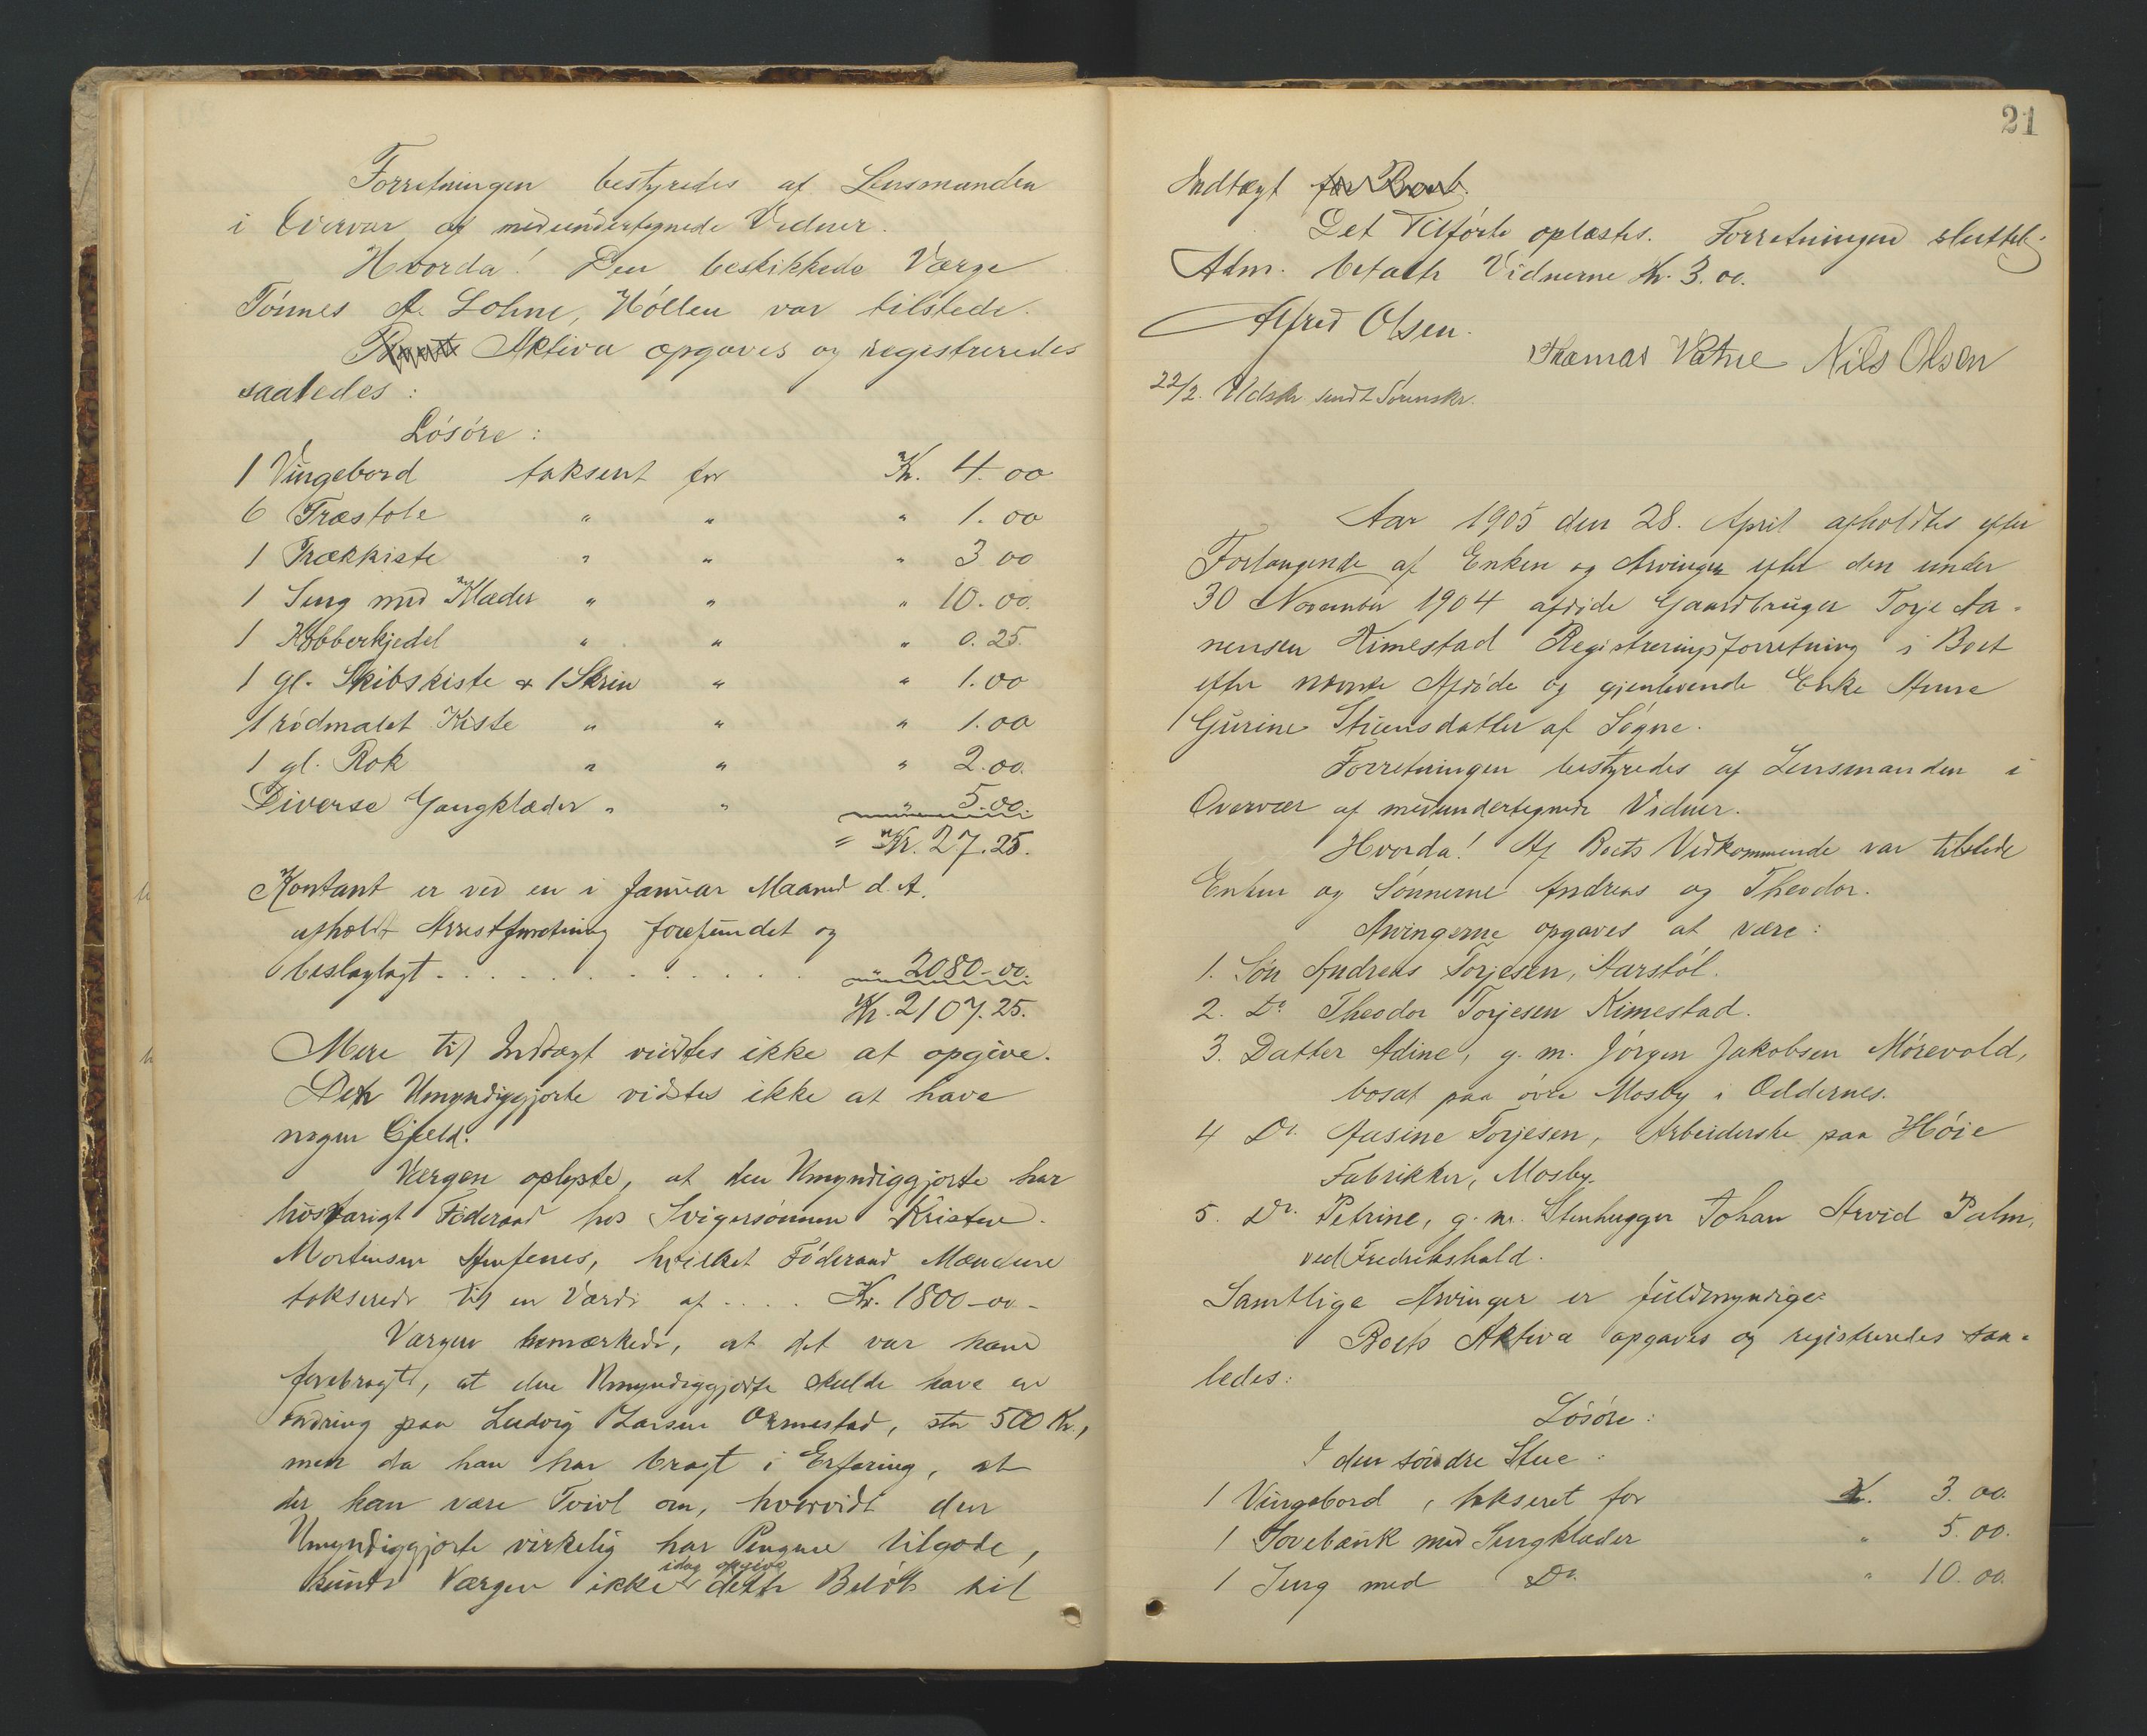 Forretningen bestyredes af Lensmanden
i Overvær af medundertegnede Vidner.
Hvorda! Den beskikkede Værge
Tönnes A. Lohne, Höllen var tilstede.
Aktiva opgaves og registreredes
saaledes:
Lösöre:
1 Vingebord taksert for Kr. 4.00
6 Træstole " " " 1.00
1 Trækkiste " " " 3 00
1 Seng med Klæder " " " 10.00.
1 Kobberkjedel " " " 0.25.
1 gl. Skibskiste & 1 Skrin " " 1.00
1 rödmalet Kiste " " " 1.00
1 gl. Rok " " " 2.00.
Diverse Gangklæder " " " 5.00.
= Kr. 27.25.
Kontant er ved en i Januar Maaned d. A.
afholdt Arrestforretning forefundet og
beslaglagt . . . . . . . . . " 2080-00.
Kr. 2107.25.
Mere til Indtægt vidstes ikke at opgive.
Den Umyndiggjorte vidstes ikke at have
nogen Gjæld.
Værgen oplyste, at den Umyndiggjorte har
livsvarigt Föderaad hos Svigersönnen Kristen
Mortensen, hvilket Föderaad Mændene
takserede til en Værdi af .... Kr. 1800-00-
Værgen bemærkede, at det var ham
forebragt, at den Umyndiggjorte skulde have en
Fordring paa Ludvig Larsen Ormestad, stor 500 Kr.,
men da han har bragt i Erfaring, at
der kan være Tvivl om, hvorvidt den
Umyndiggjorte virkelig har Pengene tilgode,
kunde Værgen ikke idag opgive dette Belöb til
21
Indtægt for Boet.
Det Tilförte oplæstes. Forretningen sluttet.
Adm. betalte Vidnerne Kr. 3.00.
Alfred Olsen.
Thomas Vatne Nils Olsen
22/2. Udskr. sendt Sorenskr.
Aar 1905 den 28. April afholdtes efter
Forlangende af Enken og Arvinger efter den under
30 November 1904 afdöde Gaardbruger Torje Aa-
nensen Kimestad Registreringsforretning i Boet
efter nævnte Afdöde og gjenlevende Enke Anne
Gurine Stiensdatter af Sögne.
Forretningen bestyredes af Lensmanden i
Overvær af medundertegnede Vidner.
Hvorda! Af Boets Vedkommende var tilstede
Enken og Sönnerne Andreas og Theodor.
Arvingerne opgaves at være:
1. Sön Andreas Torjesen, Aarstöl.
2. Do Theodor Torjesen Kimestad.
3. Datter Adine, g. m. Jörgen Jakobsen Mörevold,
bosat paa övre Mosby i Oddernes.
4 Do. Jasine Torjesen, Arbeiderske paa Höie
Fabrikker, Mosby.
5. Do. Petrine, g. m. Stenhugger Johan Arvid Palm,
ved Fredrikshald.
Samtlige Arvinger er fuldmyndige.
Boets Aktiva opgaves og registreredes saa-
ledes:
Lösöre:
I den söndre Stue:
1 Vingebord, takseret for K. 3.00.
1 Sovebænk med Sengklæder " 5.00.
1 Seng med Do. " 10.00.